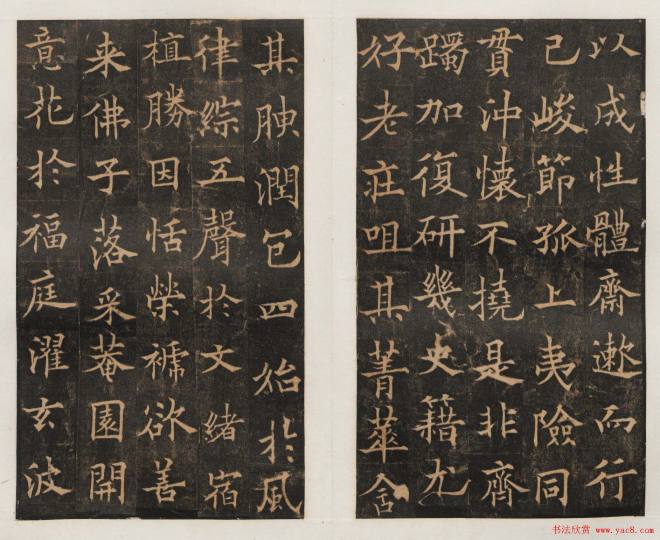 以成性體齋遬而行
己峻節孤上夷險同
貫沖懷不撓是非齊
躅加復研幾史籍尤
好老莊咀其菁華含
其腴潤包四始於風
律綜五聲於文緒宿
植勝因恬榮褫欲善
来佛子落采菴園開
意花於福庭濯玄波
书法欣赏 www.yac8.com